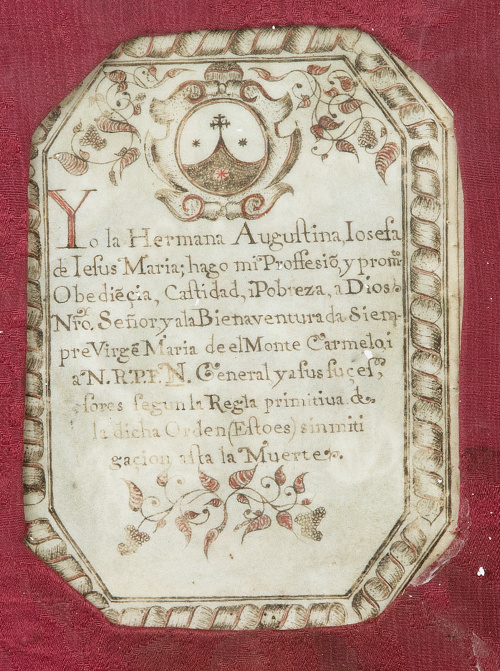 Yo la Hermana Augustina, Iosefa
de Iesus Maria; hago mi Proffesiõ, y prom̃
Obediẽçia, Castidad, iPobreza, a Dios
Nr̃o. Señor, y ala Bienaventurada Siem-
pre Virgẽ Maria de el Monte Carmelo, i
a N. R. P. F. N. General y a sus suçes,
sores segun la Regla primitiua de
la dicha Orden (Esto es) sin miti
gaçion asta la Muerte.